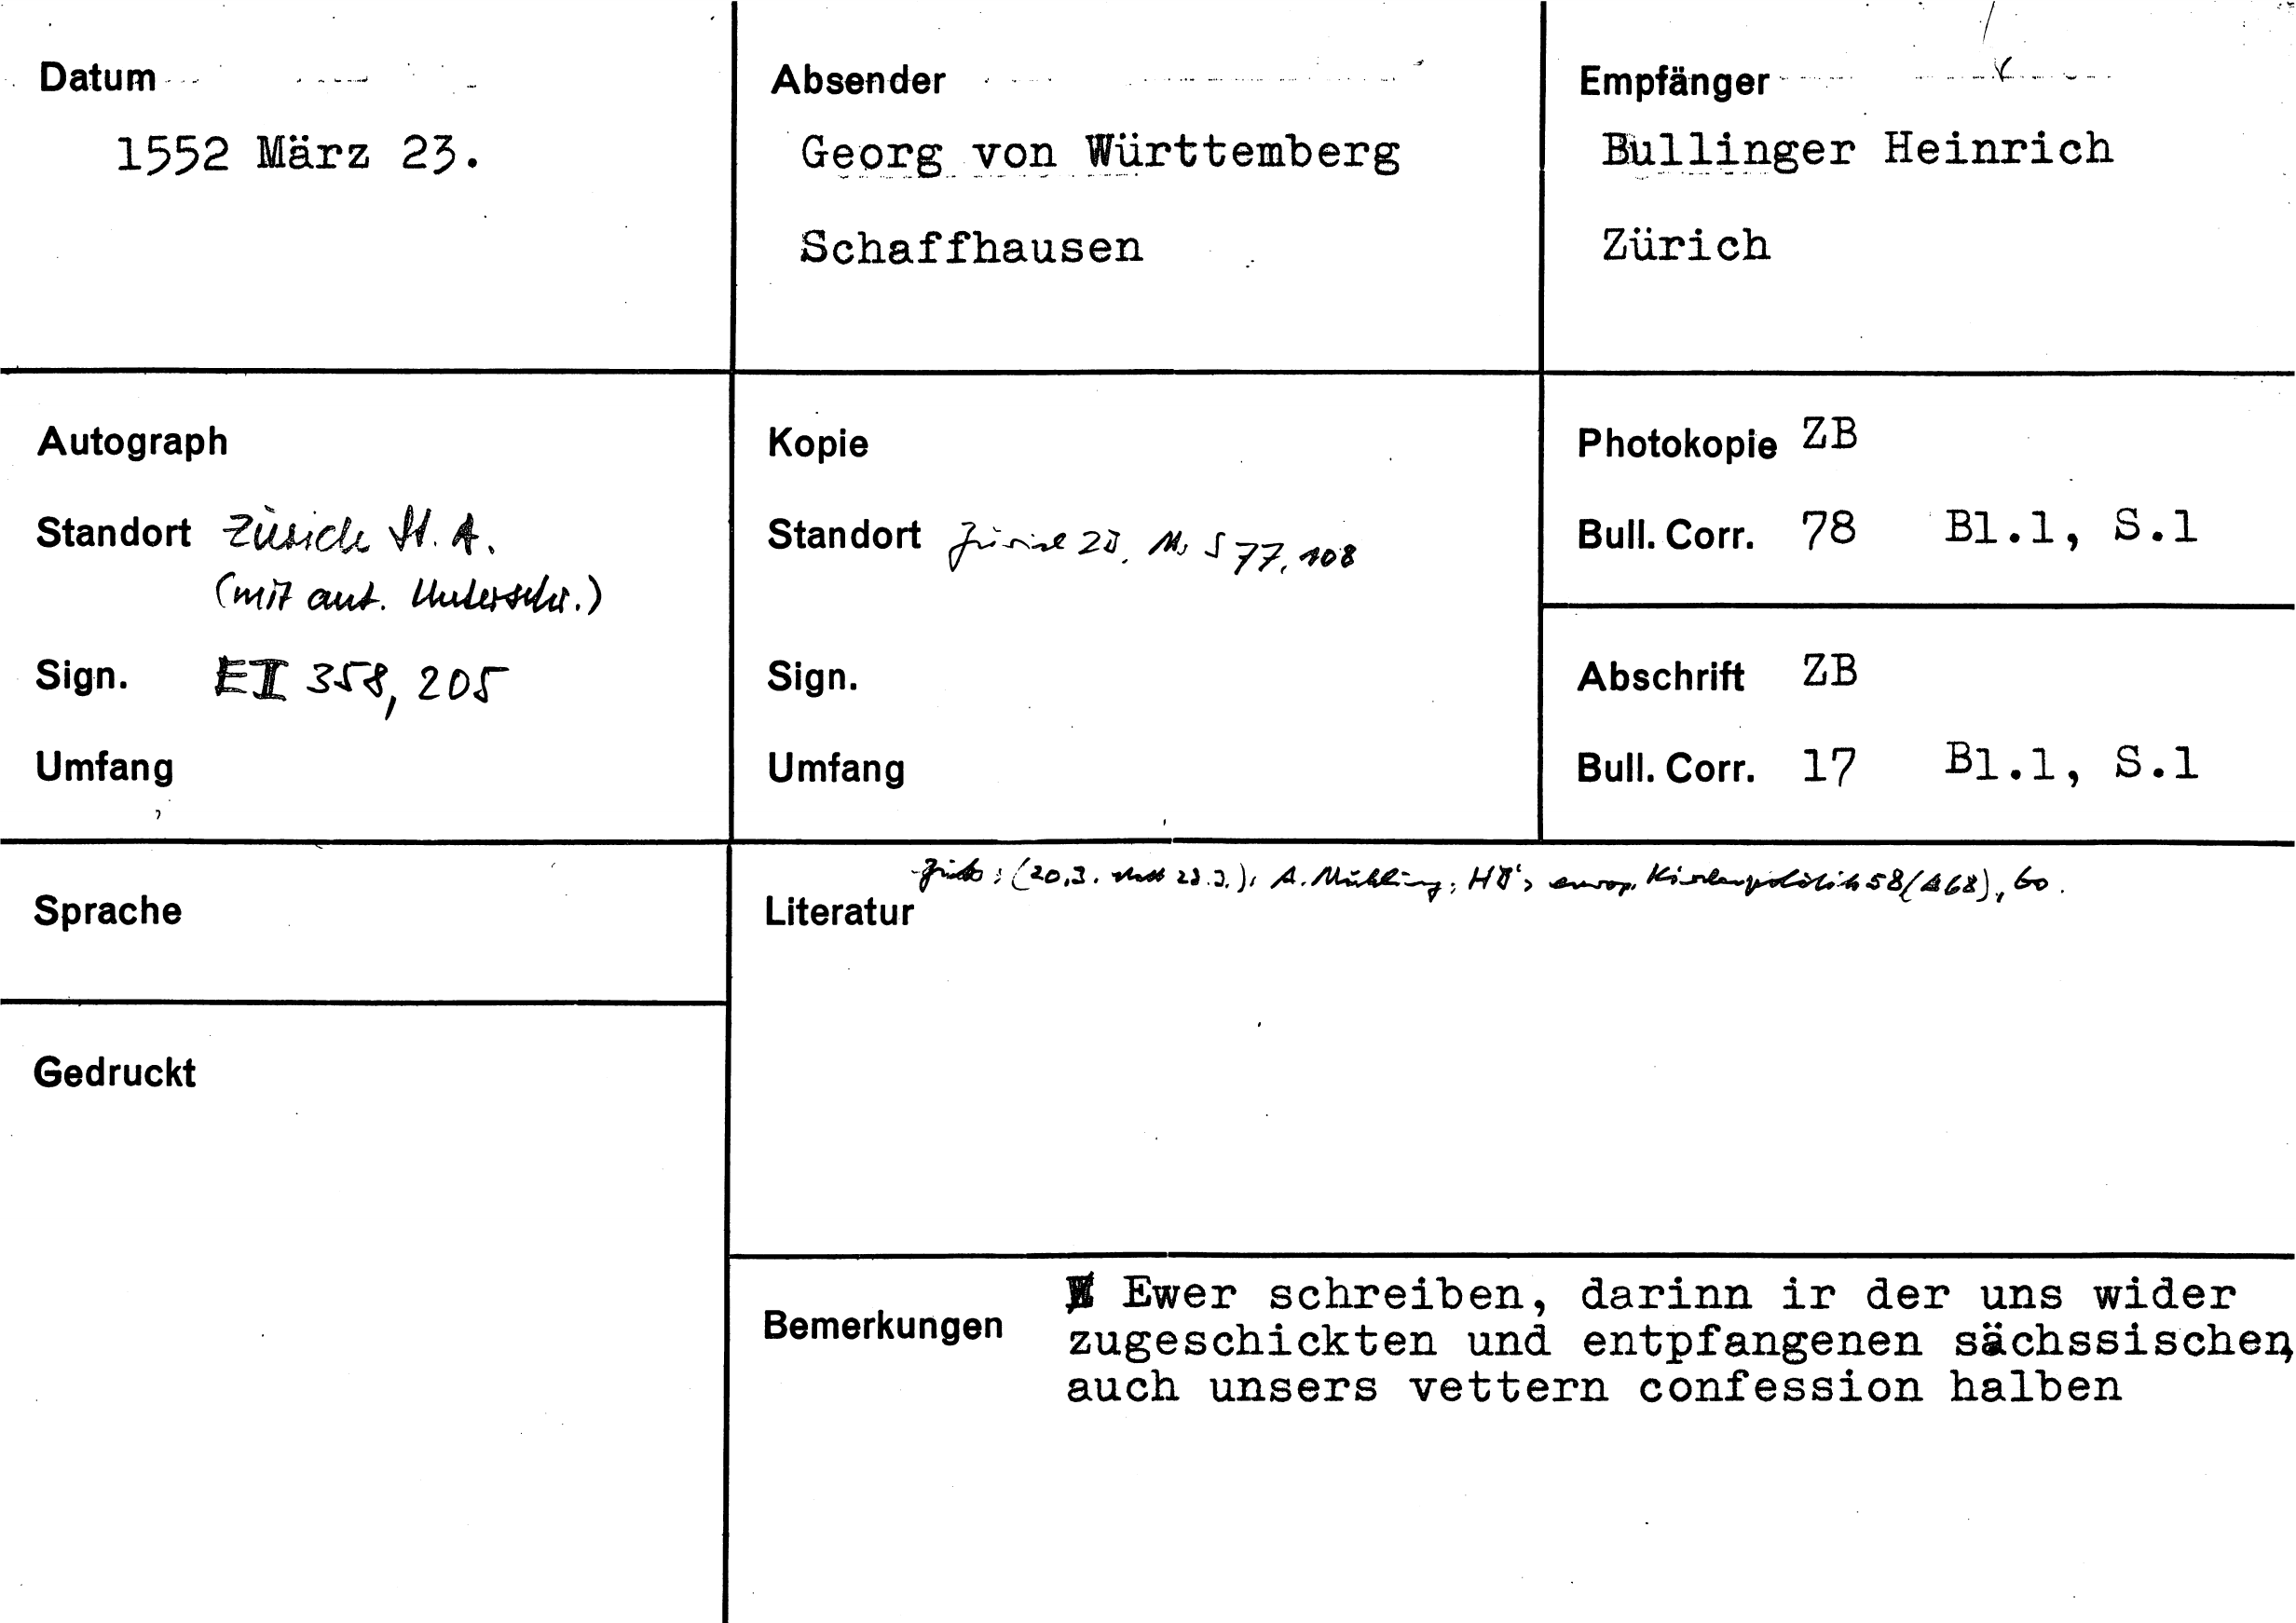 Datum
1552 März 23.
Absender
Georg von Württemberg
Schaffhausen
Empfänger
Bullinger Heinrich
Zürich
Autograph
Standort Zürich St. A.
(mit aut. Unterschr.)
Sign. EII 358, 205
Umfang
Kopie
Standort Zürich ZB. Ms S 77, 108
Sign.
Umfang
Photokopie ZB
Bull. Corr. 78 Bl.1, S.1
Abschrift ZB
Bull. Corr. 17 Bl.1, S.1
Sprache
Gedruckt
(20.3. statt 23.3.), A. Mühling, HB's europ. Kirchenpolitik 58 (A68), 60.
Literatur
Bemerkungen
Ewer schreiben, darinn ir der uns wider
zugeschickten und entpfangenen sächssischen,
auch unsers vettern confession halben